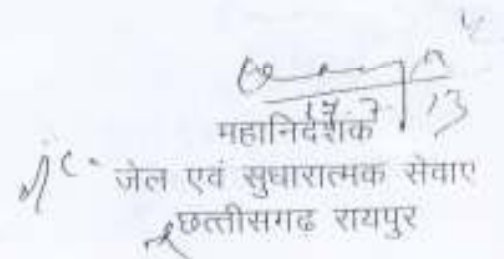 17.7.13
महानिदेशक
जेल एवं सुधारात्मक सेवाए
छत्तीसगढ रायपुर